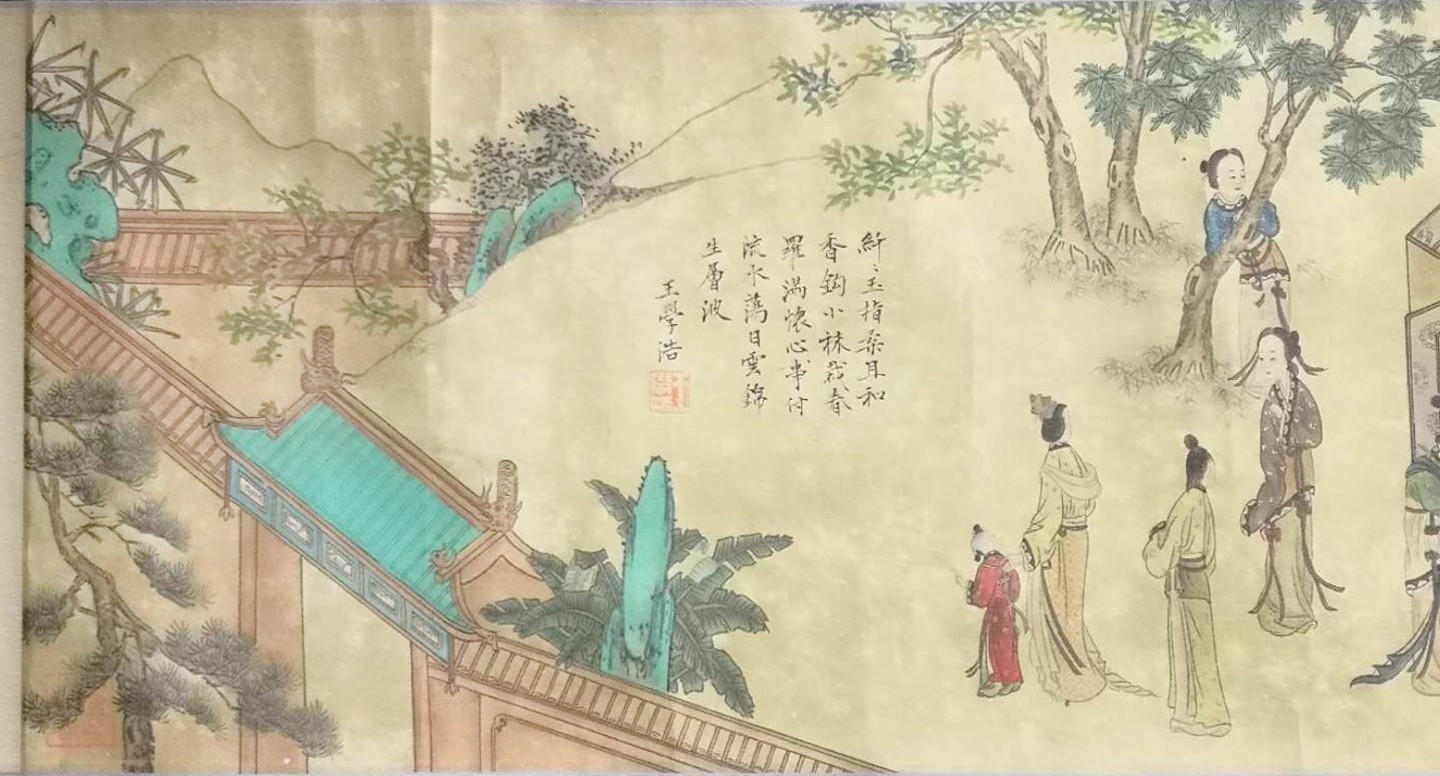 纤々玉指柔且和
香鈎小袜裁春
羅滿懷心事付
流水蕩日雲錦
生層波
王學浩